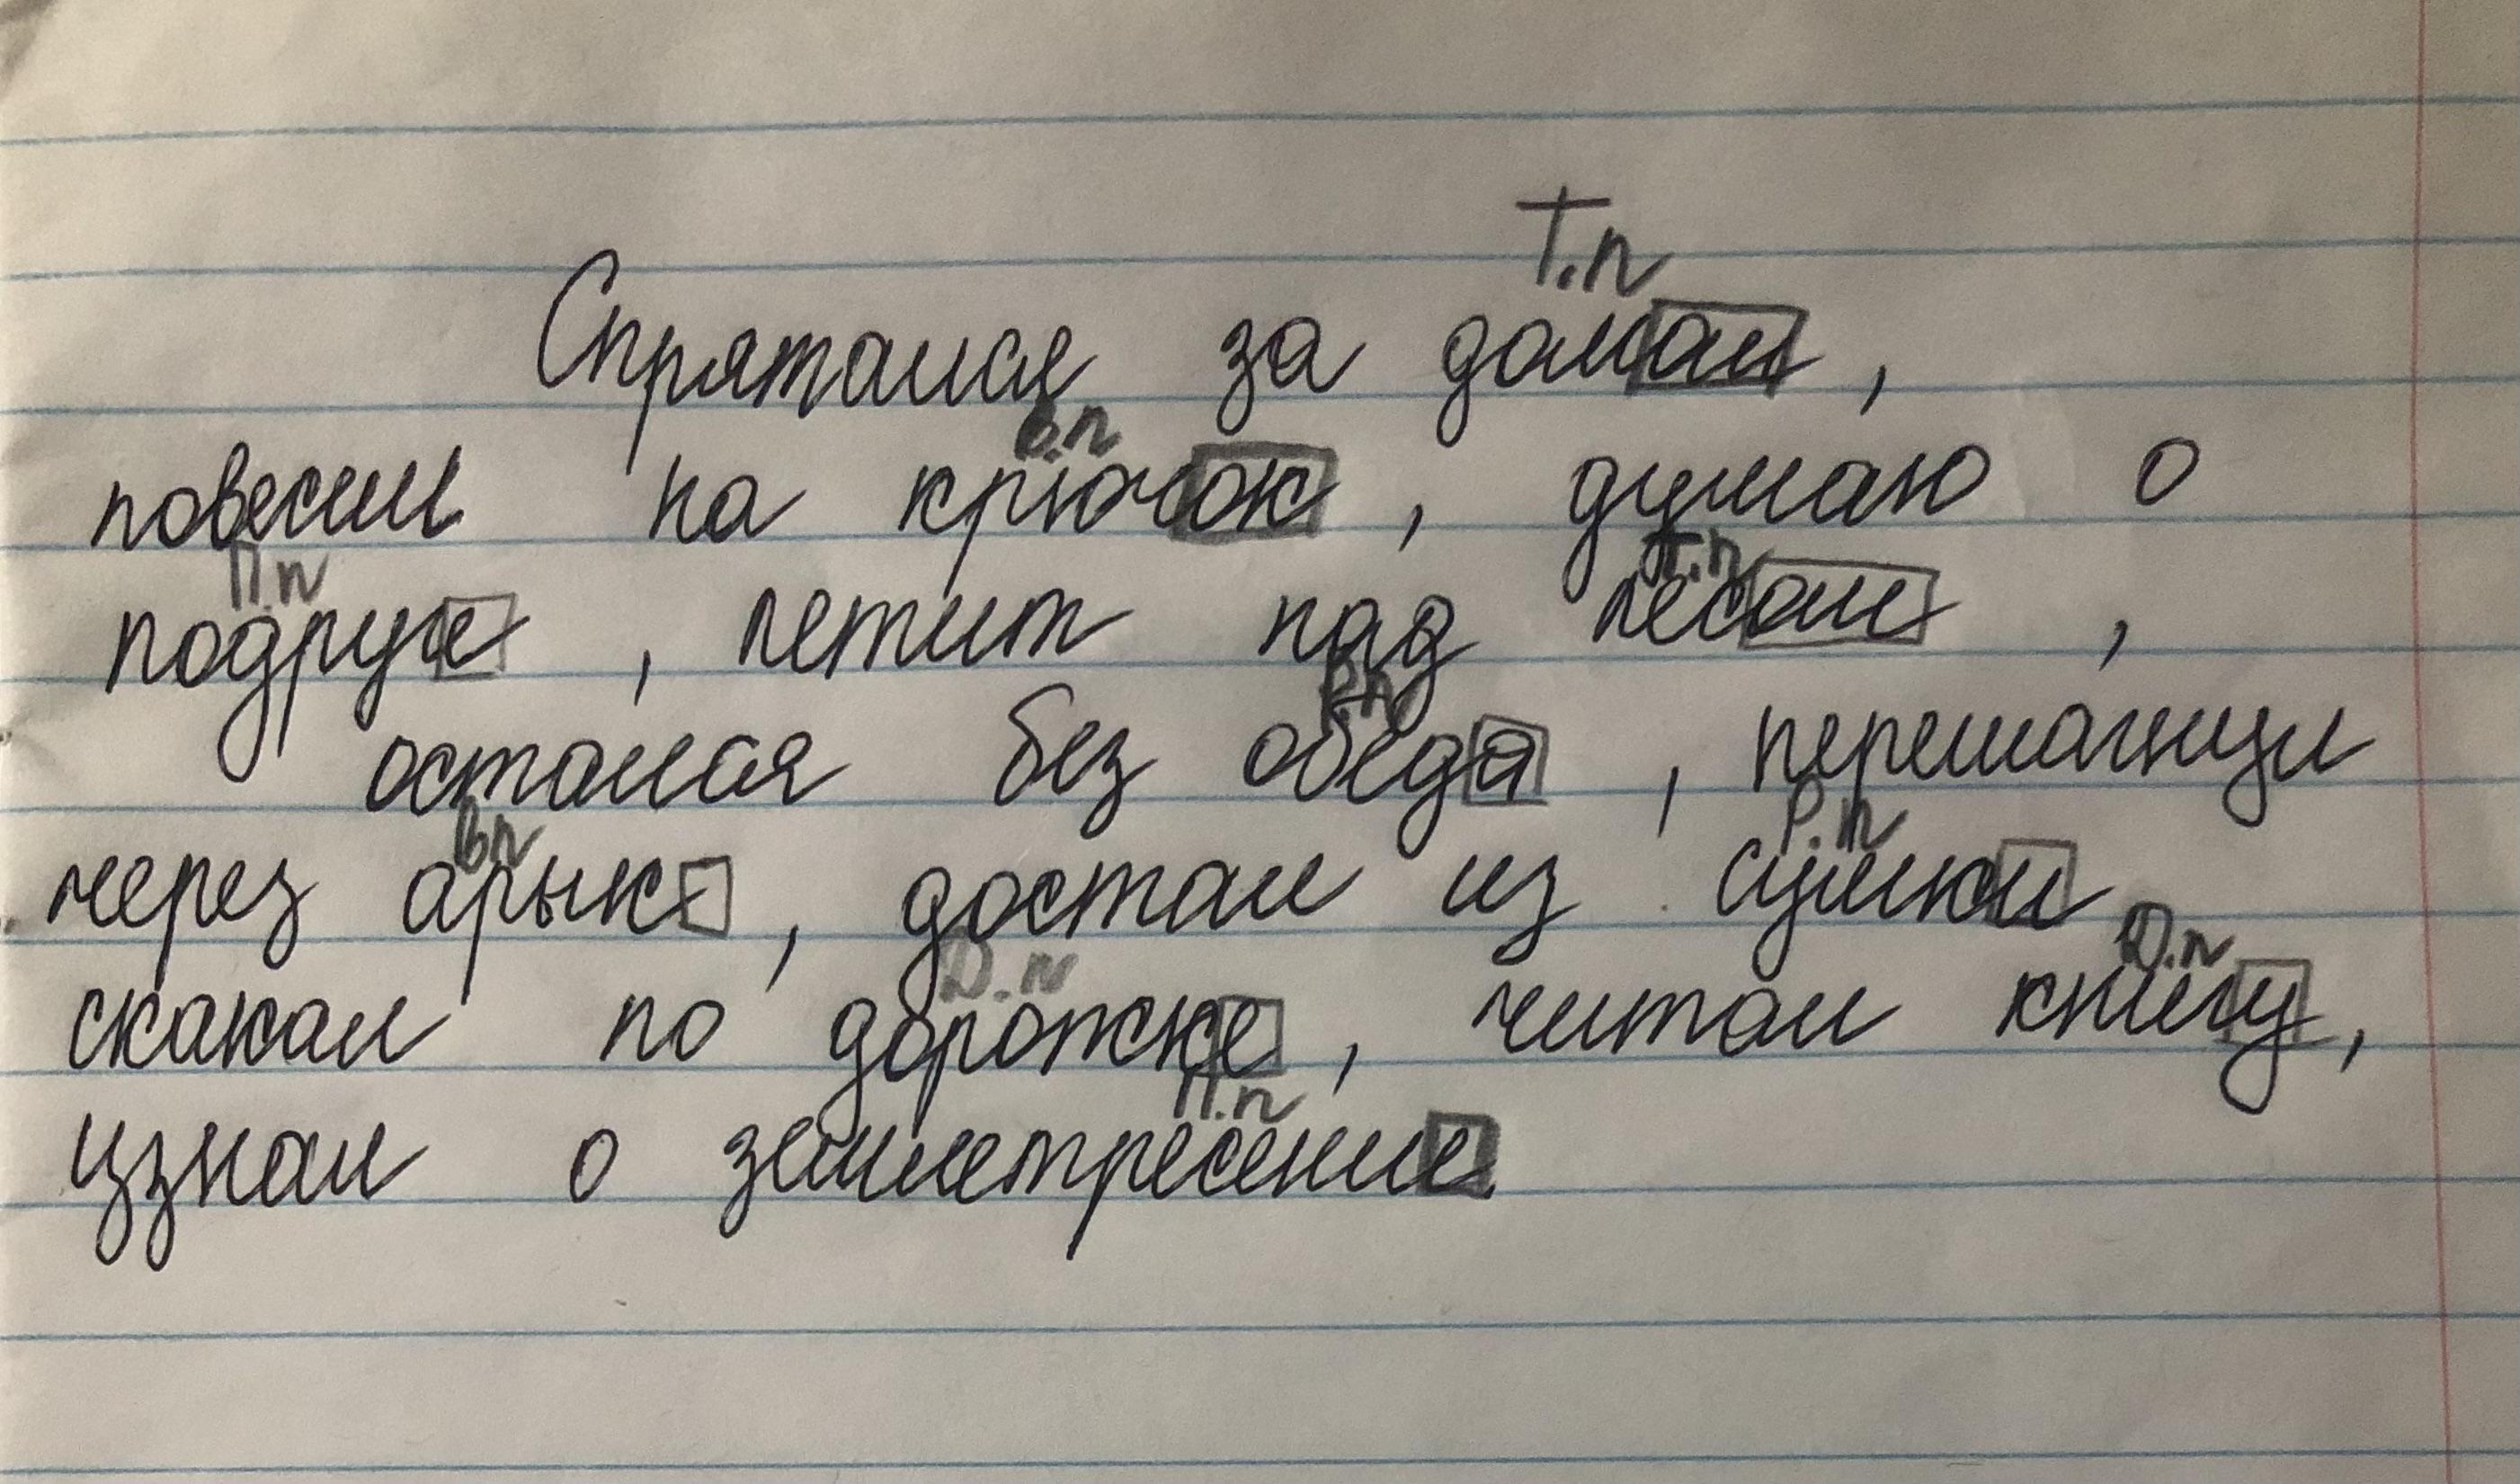 Т.п
Спрятался за домом,
В.п
повесил на крючок, думаю о
П.п Т.п
подруге, летит над лесом,
Р.п
остался без обеда, перешагнул
Вп Р.п
через арык, достал из сумки
Д.п Д.п
скакал по дорожке, читал книгу,
П.п
узнал о землетресение